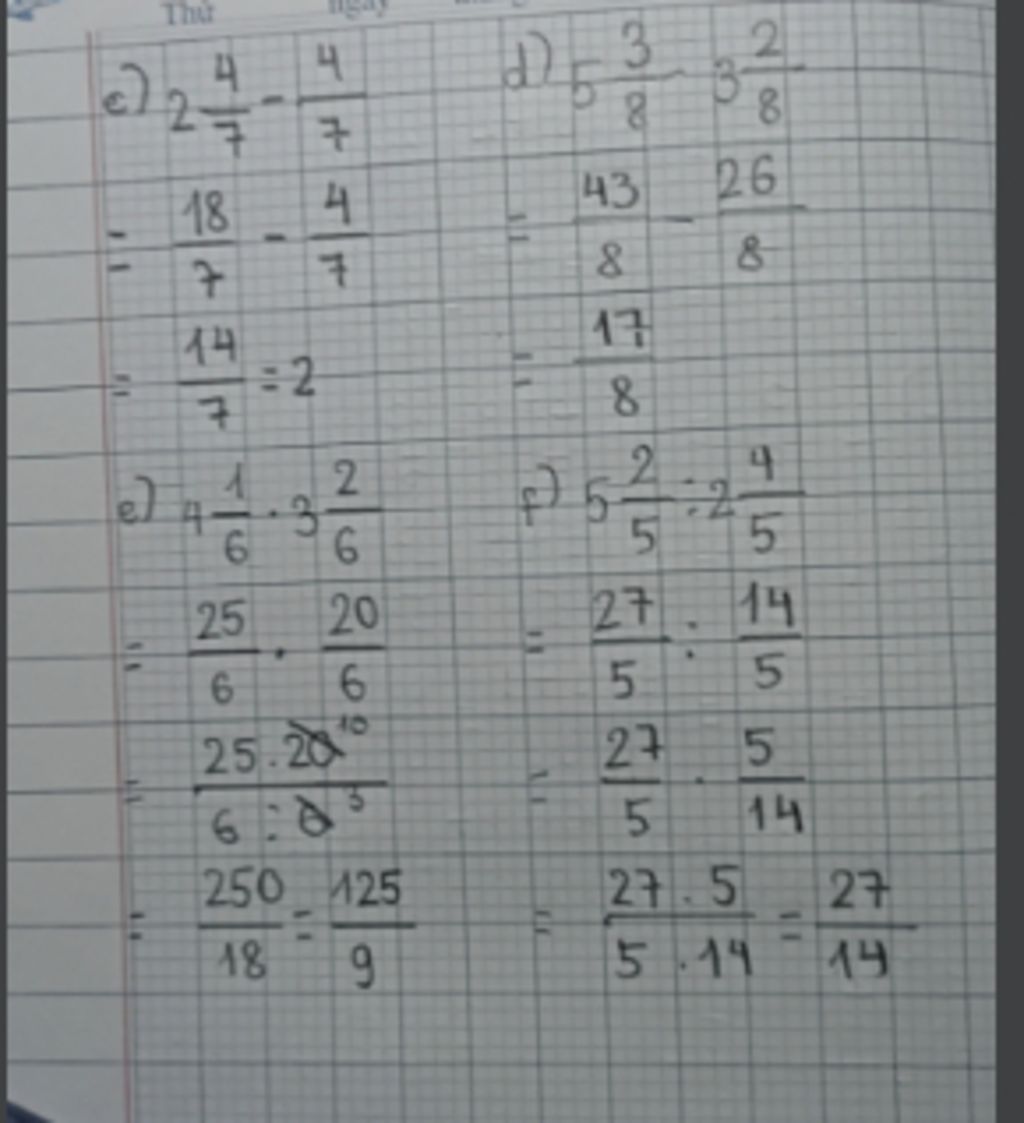 Thứ ngày
c) 2 4/7 - 4/7
= 18/7 - 4/7
= 14/7 = 2
d) 5 3/8 - 3 2/8
= 43/8 - 26/8
= 17/8
e) 4 1/6 . 3 2/6
= 25/6 . 20/6
= 25 . 20 10 / 6 : 6 3
= 250/18 = 125/9
f) 5 2/5 : 2 4/5
= 27/5 : 14/5
= 27/5 . 5/14
= 27 . 5 / 5 . 14 = 27/14